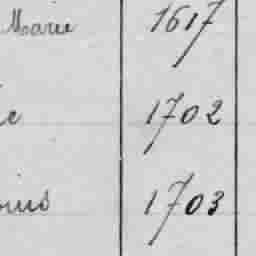 Marie 1617
1702
1703